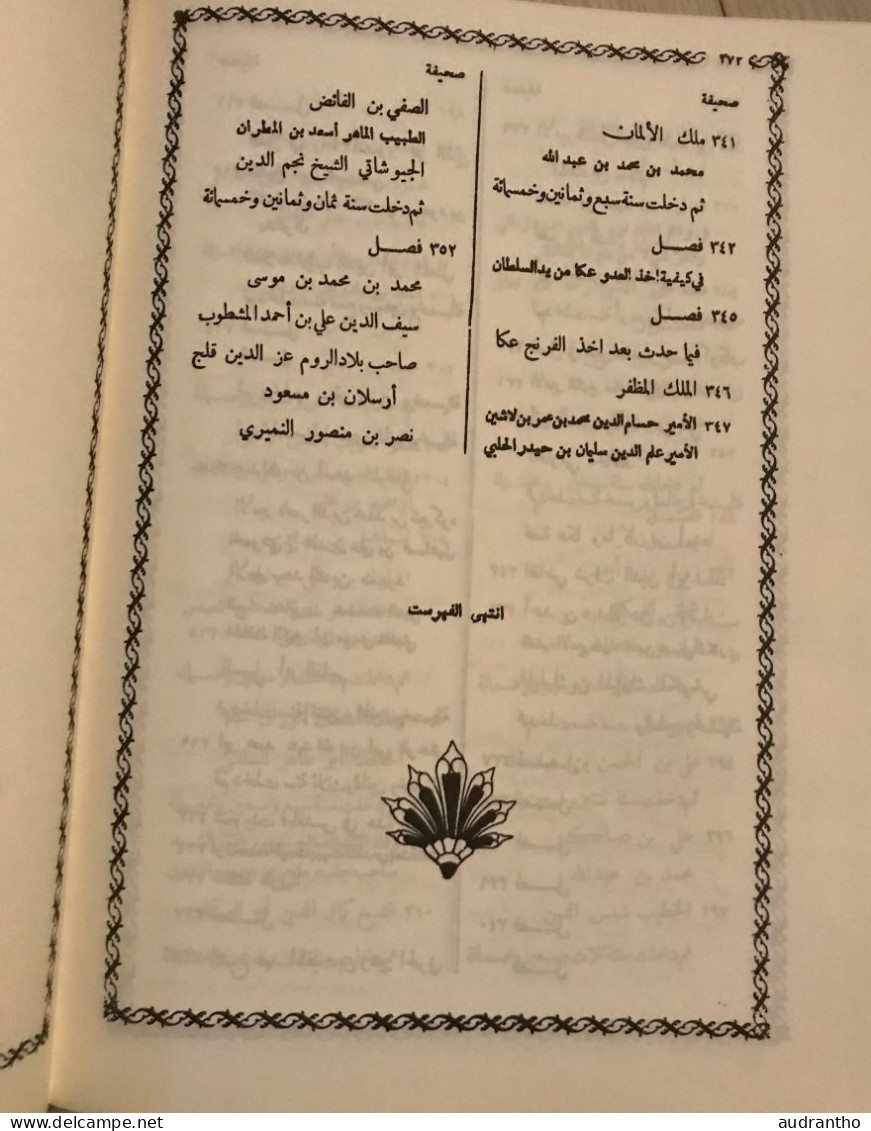 ٣٧٢
صحيفة
٣٤١ ملك الألمان
محمد بن محمد بن عبد الله
ثم دخلت سنة سبع وثمانين وخمسمائة
٣٤٢ فصل
في كيفية أخذ العدو عكا من يد السلطان
٣٤٥ فصل
فيما حدث بعد اخذ الفرنج عكا
٣٤٦ الملك المظفر
٣٤٧ الأمير حسام الدين محمد بن عمر بن لاشين
الأمير علم الدين سليمان بن حيدر الحلبي
صحيفة
الصفي بن الفائض
الطبيب الماهر أسعد بن المطران
الجيوشاتي الشيخ نجم الدين
ثم دخلت سنة ثمان وثمانين وخمسمائة
٣٥٢ فصل
محمد بن محمد بن موسى
سيف الدين علي بن أحمد المشطوب
صاحب بلاد الروم عز الدين قلج
أرسلان بن مسعود
نصر بن منصور النميري
انتهى الفهرست
Delcampe.net
audrantho